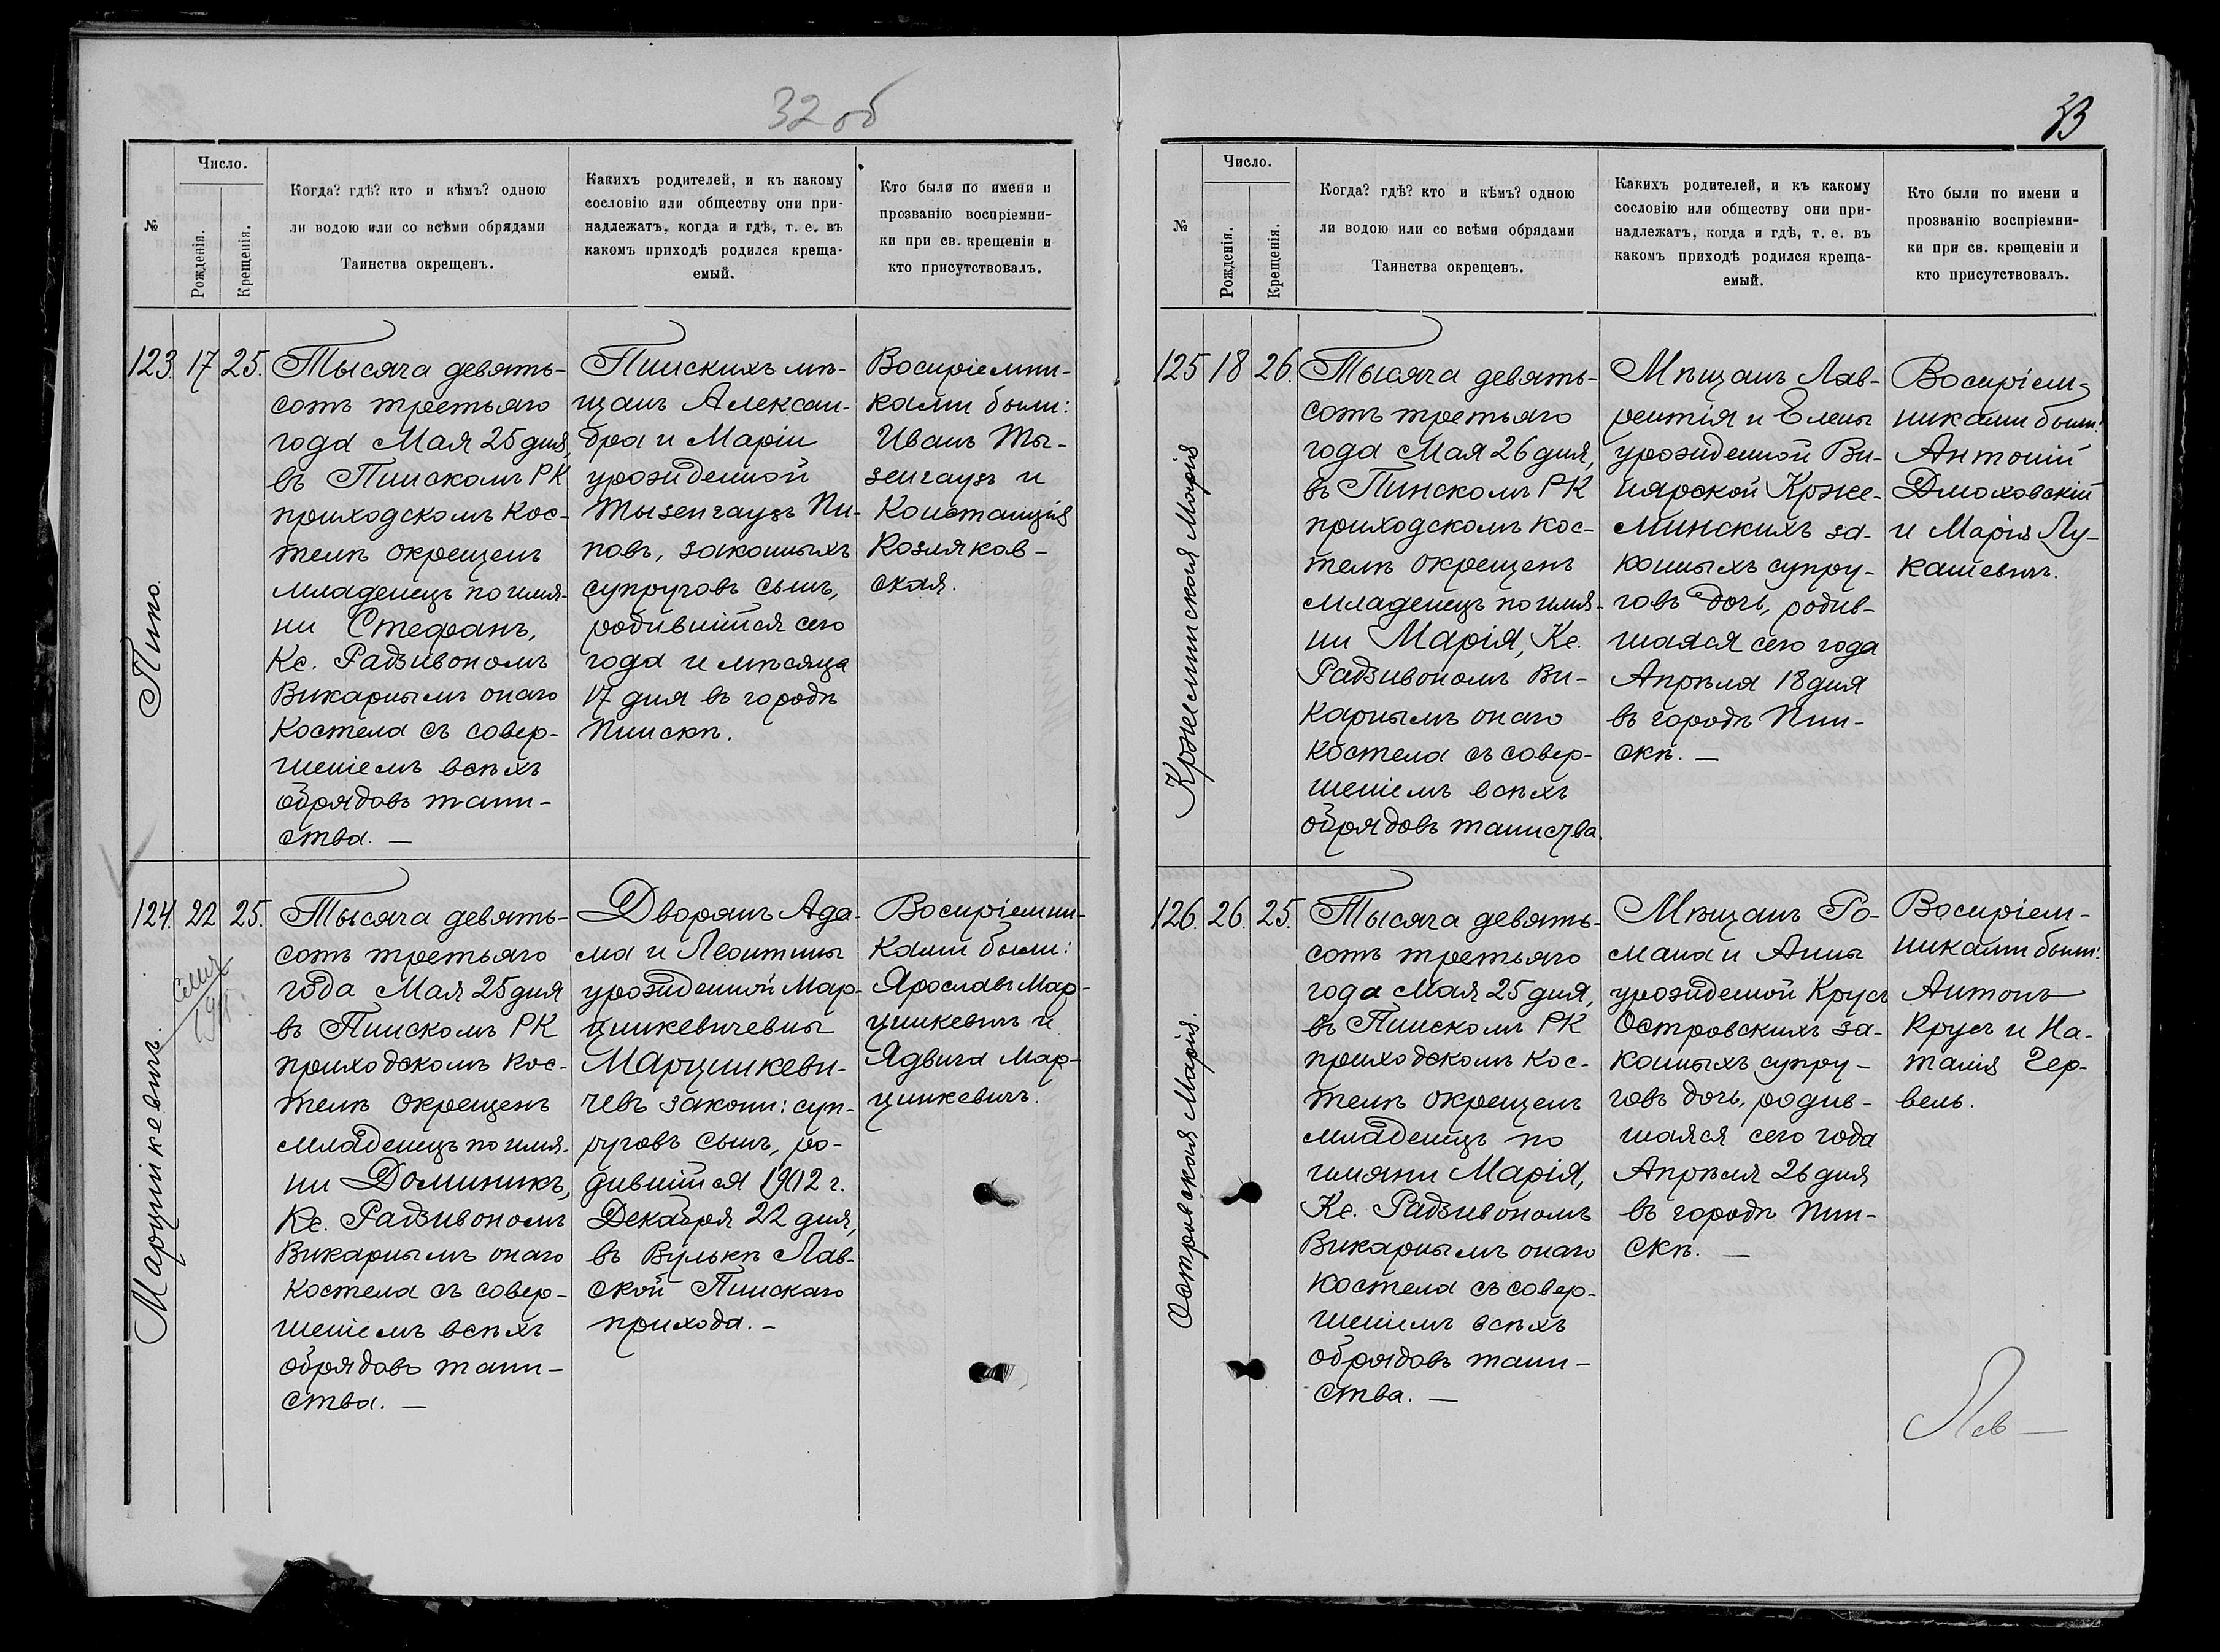 32 об
№
Число.
Рожденія.
Крещенія.
Когда? гдѣ? кто и кѣмъ? одною
ли водою или со всѣми обрядами
Таинства окрещенъ.
Какихъ родителей, и къ какому
сословію или обществу они при-
надлежатъ, когда и гдѣ, т. е. въ
какомъ приходѣ родился креща-
емый.
Кто были по имени и
прозванію воспріемни-
ки при св. крещеніи и
кто присутствовалъ.
123. 17 25.
Пипо.
Тысяча девять-
сотъ третьяго
года Мая 25 дня,
въ Пинскомъ РК
приходскомъ Кос-
телѣ окрещенъ
младенецъ по имя-
ни Стефанъ,
Кс. Радзивономъ
Викарнымъ онаго
Костела съ совер-
шеніемъ всѣхъ
обрядовъ таин-
ства. —
Пинскихъ мѣ-
щанъ Алексан-
дра и Маріи
урожденной
Тызенгаузъ Пи-
повъ, законныхъ
супруговъ сынъ,
родившійся сего
года и мѣсяца
17 дня въ городѣ
Пинскѣ.
Воспріемни-
ками были:
Иванъ Ты-
зенгаузъ и
Констанція
Козляков-
ская.
124. 22 25.
Марцинкевичъ.
Тысяча девять-
сотъ третьяго
года Мая 25 дня
въ Пинскомъ РК
приходскомъ Кос-
телѣ окрещенъ
младенецъ по имя-
ни Доминикъ,
Кс. Радзивономъ
Викарнымъ онаго
Костела съ совер-
шеніемъ всѣхъ
обрядовъ таин-
ства. —
Дворянъ Ада-
ма и Леонтины
урожденной Мар-
цинкевичевны
Марцинкеви-
чевъ законн: суп-
руговъ сынъ, ро-
дившійся 1902 г.
Декабря 22 дня,
въ Вулькѣ Лав-
ской Пинскаго
прихода. —
Воспріемни-
ками были:
Ярославъ Мар-
цинкевичъ и
Ядвига Мар-
цинкевичъ.
33
№
Число.
Рожденія.
Крещенія.
Когда? гдѣ? кто и кѣмъ? одною
ли водою или со всѣми обрядами
Таинства окрещенъ.
Какихъ родителей, и къ какому
сословію или обществу они при-
надлежатъ, когда и гдѣ, т. е. въ
какомъ приходѣ родился креща-
емый.
Кто были по имени и
прозванію воспріемни-
ки при св. крещеніи и
кто присутствовалъ.
125 18 26.
Кржеминская Марія
Тысяча девять-
сотъ третьяго
года Мая 26 дня,
въ Пинскомъ РК
приходскомъ Кос-
телѣ окрещенъ
младенецъ по имя-
ни Марія, Кс.
Радзивономъ Ви-
карнымъ онаго
Костела съ совер-
шеніемъ всѣхъ
обрядовъ таинства.
Мѣщанъ Лав-
рентія и Елены
урожденной Ви-
нярской Крже-
минскихъ за-
конныхъ супру-
говъ дочь, родив-
шаяся сего года
Апрѣля 18 дня
въ городѣ Пин-
скѣ. —
Воспріем-
никами были:
Антоній
Дмоховскій
и Марія Лу-
кашевичъ.
126. 26. 25.
Островская Марія.
Тысяча девять-
сотъ третьяго
года Мая 25 дня,
въ Пинскомъ РК
приходскомъ Кос-
телѣ окрещенъ
младенецъ по
имяни Марія,
Кс. Радзивономъ
Викарнымъ онаго
Костела съ совер-
шеніемъ всѣхъ
обрядовъ таин-
ства. —
Мѣщанъ Ро-
мана и Анны
урожденной Крусь
Островскихъ за-
конныхъ супру-
говъ дочь, родив-
шаяся сего года
Апрѣля 26 дня
въ городѣ Пин-
скѣ. —
Воспріем-
никами были:
Антонъ
Крусь и На-
талія Гер-
вель.